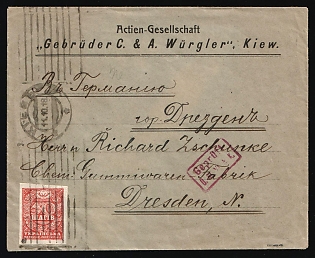 Actien-Gesellschaft
„Gebrüder C. & A. Würgler“, Kiew.
Въ Германію
гор. Дрезденъ
Herrn Richard Zschunke
Chem. Gummiwaren-Fabrik
Dresden, N.
Geprüft